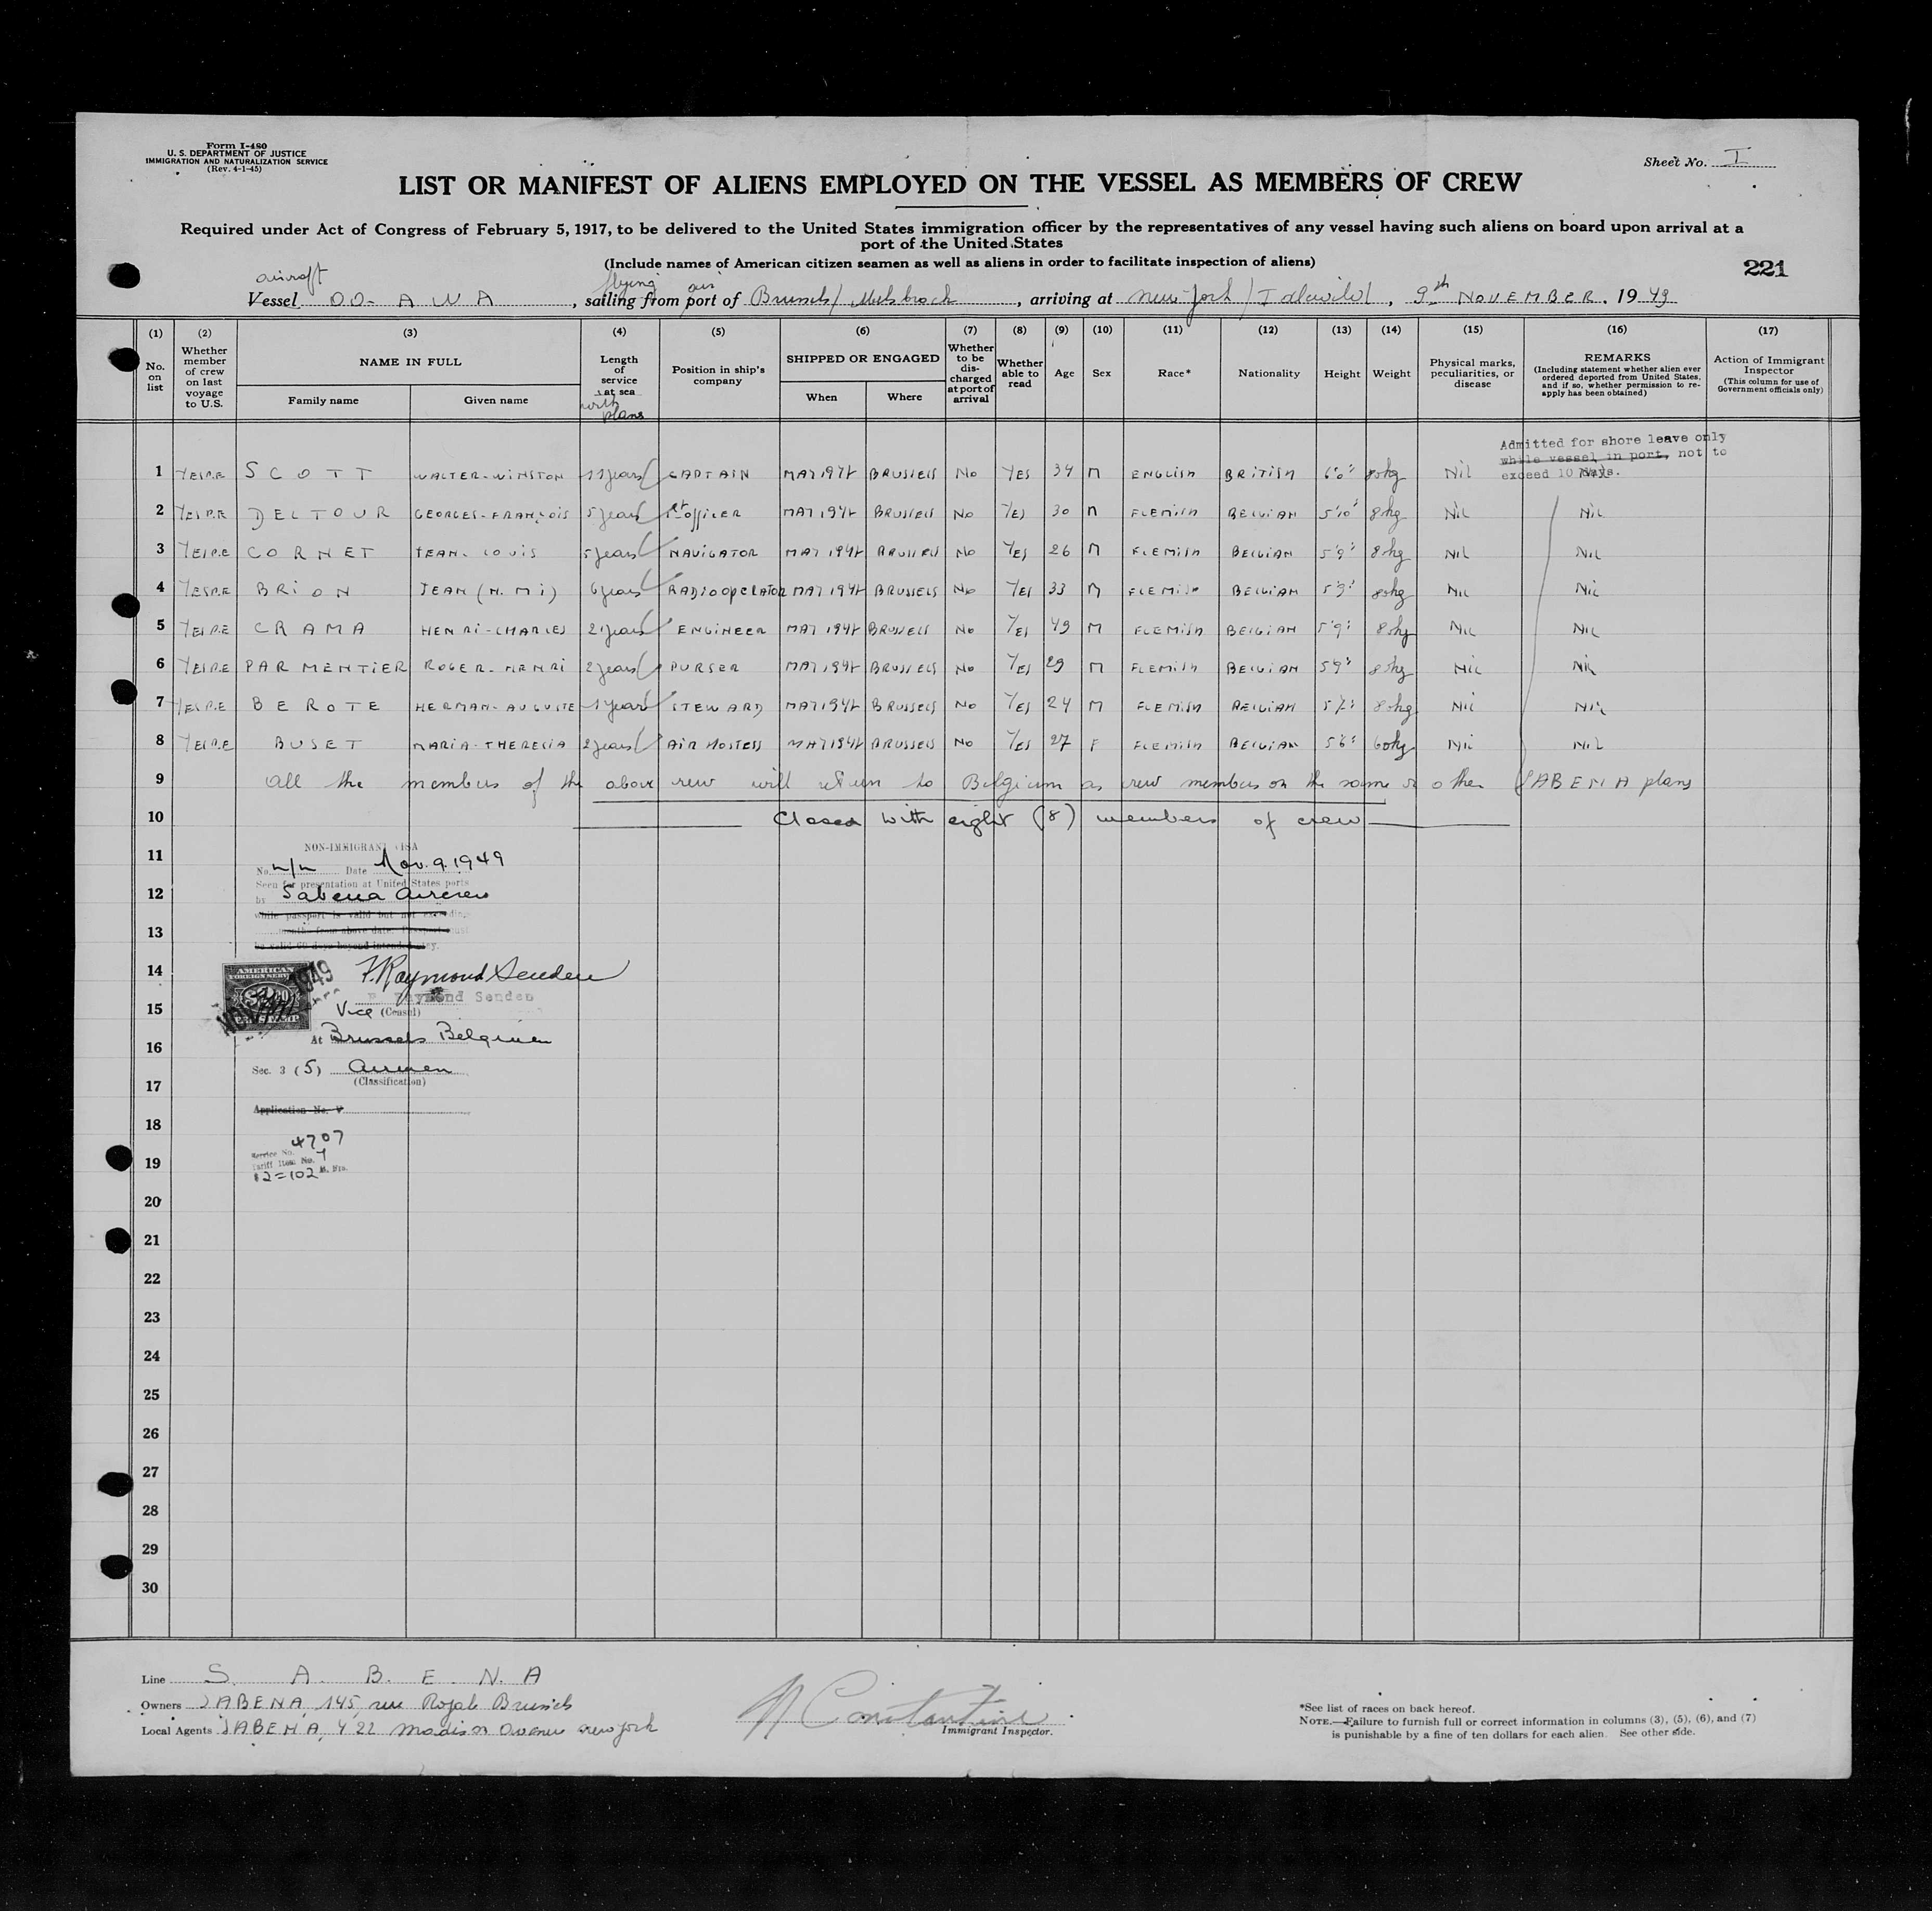 Form I-480
U. S. DEPARTMENT OF JUSTICE
IMMIGRATION AND NATURALIZATION SERVICE
(Rev. 4-1-45)
Sheet No. I
LIST OR MANIFEST OF ALIENS EMPLOYED ON THE VESSEL AS MEMBERS OF CREW
Required under Act of Congress of February 5, 1917, to be delivered to the United States immigration officer by the representatives of any vessel having such aliens on board upon arrival at a
port of the United States
(Include names of American citizen seamen as well as aliens in order to facilitate inspection of aliens)
221
aircraft flying air
Vessel OO- A W A , sailing from port of Brussels/ Melsbroek , arriving at New-York / Idlewild , 9th NOVEMBER , 1949
(1) (2) (3) (4) (5) (6) (7) (8) (9) (10) (11) (12) (13) (14) (15) (16) (17)
No. on list
Whether member of crew on last voyage to U.S.
NAME IN FULL
Family name
Given name
Length of service at sea
with plane
Position in ship's company
SHIPPED OR ENGAGED
When
Where
Whether to be discharged at port of arrival
Whether able to read
Age
Sex
Race*
Nationality
Height
Weight
Physical marks, peculiarities, or disease
REMARKS
(Including statement whether alien ever ordered deported from United States, and if so, whether permission to reapply has been obtained)
Action of Immigrant Inspector
(This column for use of Government officials only)
Admitted for shore leave only
while vessel in port, not to
exceed 10 days.
1 SCOTT WALTER-WINSTON 11 years CAPTAIN BRUSSELS No YES 34 M ENGLISH BRITISH 6'0" 80kg Nil
2 DELTOUR GEORGES-FRANÇOIS 5 years 1st OFFICER BRUSSELS No YES 30 M FLEMISH BELGIAN 5'10" 80kg Nil Nil
3 CORNET JEAN-LOUIS 5 years NAVIGATOR BRUSSELS No YES 26 M FLEMISH BELGIAN 5'9" 80kg Nil Nil
4 BRION JEAN (N.M.I) 6 years RADIOOPERATOR BRUSSELS No YES 33 M FLEMISH BELGIAN 5'9" 80kg Nil Nil
5 CRAMA HENRI-CHARLES 21 years ENGINEER BRUSSELS No YES 49 M FLEMISH BELGIAN 5'9" 80kg Nil Nil
6 PARMENTIER ROGER-HENRI 2 years PURSER BRUSSELS No YES 29 M FLEMISH BELGIAN 5'9" 80kg Nil Nil
7 BEROTE HERMAN-AUGUSTE 1 year STEWARD BRUSSELS No YES 24 M FLEMISH BELGIAN 80kg Nil Nil
8 BUSET MARIA-THERESIA 2 years AIR HOSTESS BRUSSELS No YES 27 F FLEMISH BELGIAN 5'6" 60kg Nil Nil
9 All the members of the above crew will return to Belgium as crew members on the same or other SABENA plane
10 Closed with eight (8) members of crew
11
NON-IMMIGRANT VISA
No. n/n Date Nov. 9. 1949
12
Seen for presentation at United States ports
by Sabena Aircrew
while passport is valid but not exceeding
13
months from above date. Passport must
be valid 60 days beyond intended stay.
14
AMERICAN
FOREIGN SERVICE
1949
F. Raymond Senden
F. Raymond Senden
15
Vice (Consul)
16
At Brussels Belgium
Sec. 3 (5) Airmen
17
(Classification)
Application No. V
18
4707
Service No.
19
Tariff Item No. 7
12=102
20
21
22
23
24
25
26
27
28
29
30
Line S. A. B. E. N. A
Owners SABENA, 145, rue Royale Brussels
Local Agents SABENA, 422 Madison Avenue New York
N Constantine
Immigrant Inspector.
*See list of races on back hereof.
NOTE.—Failure to furnish full or correct information in columns (3), (5), (6), and (7)
is punishable by a fine of ten dollars for each alien. See other side.